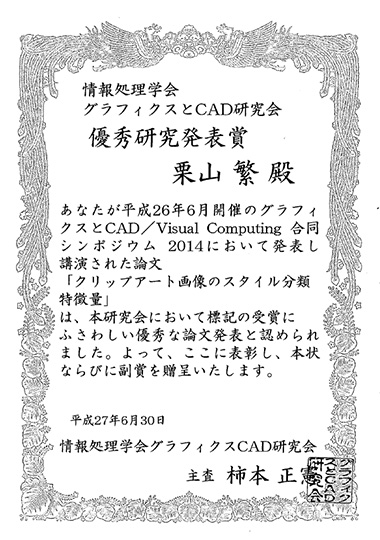 情報処理学会
グラフィクスとCAD研究会
優秀研究発表賞
栗山 繁 殿
あなたが平成26年6月開催のグラフィ
クスとCAD／Visual Computing 合同
シンポジウム 2014において発表し
講演された論文
「クリップアート画像のスタイル分類
特徴量」
は、本研究会において標記の受賞に
ふさわしい優秀な論文発表と認められ
ました。よって、ここに表彰し、本状
ならびに副賞を贈呈いたします。
平成27年6月30日
情報処理学会グラフィクスCAD研究会
主査 柿本 正憲
グラフィク
スとCAD
研究会